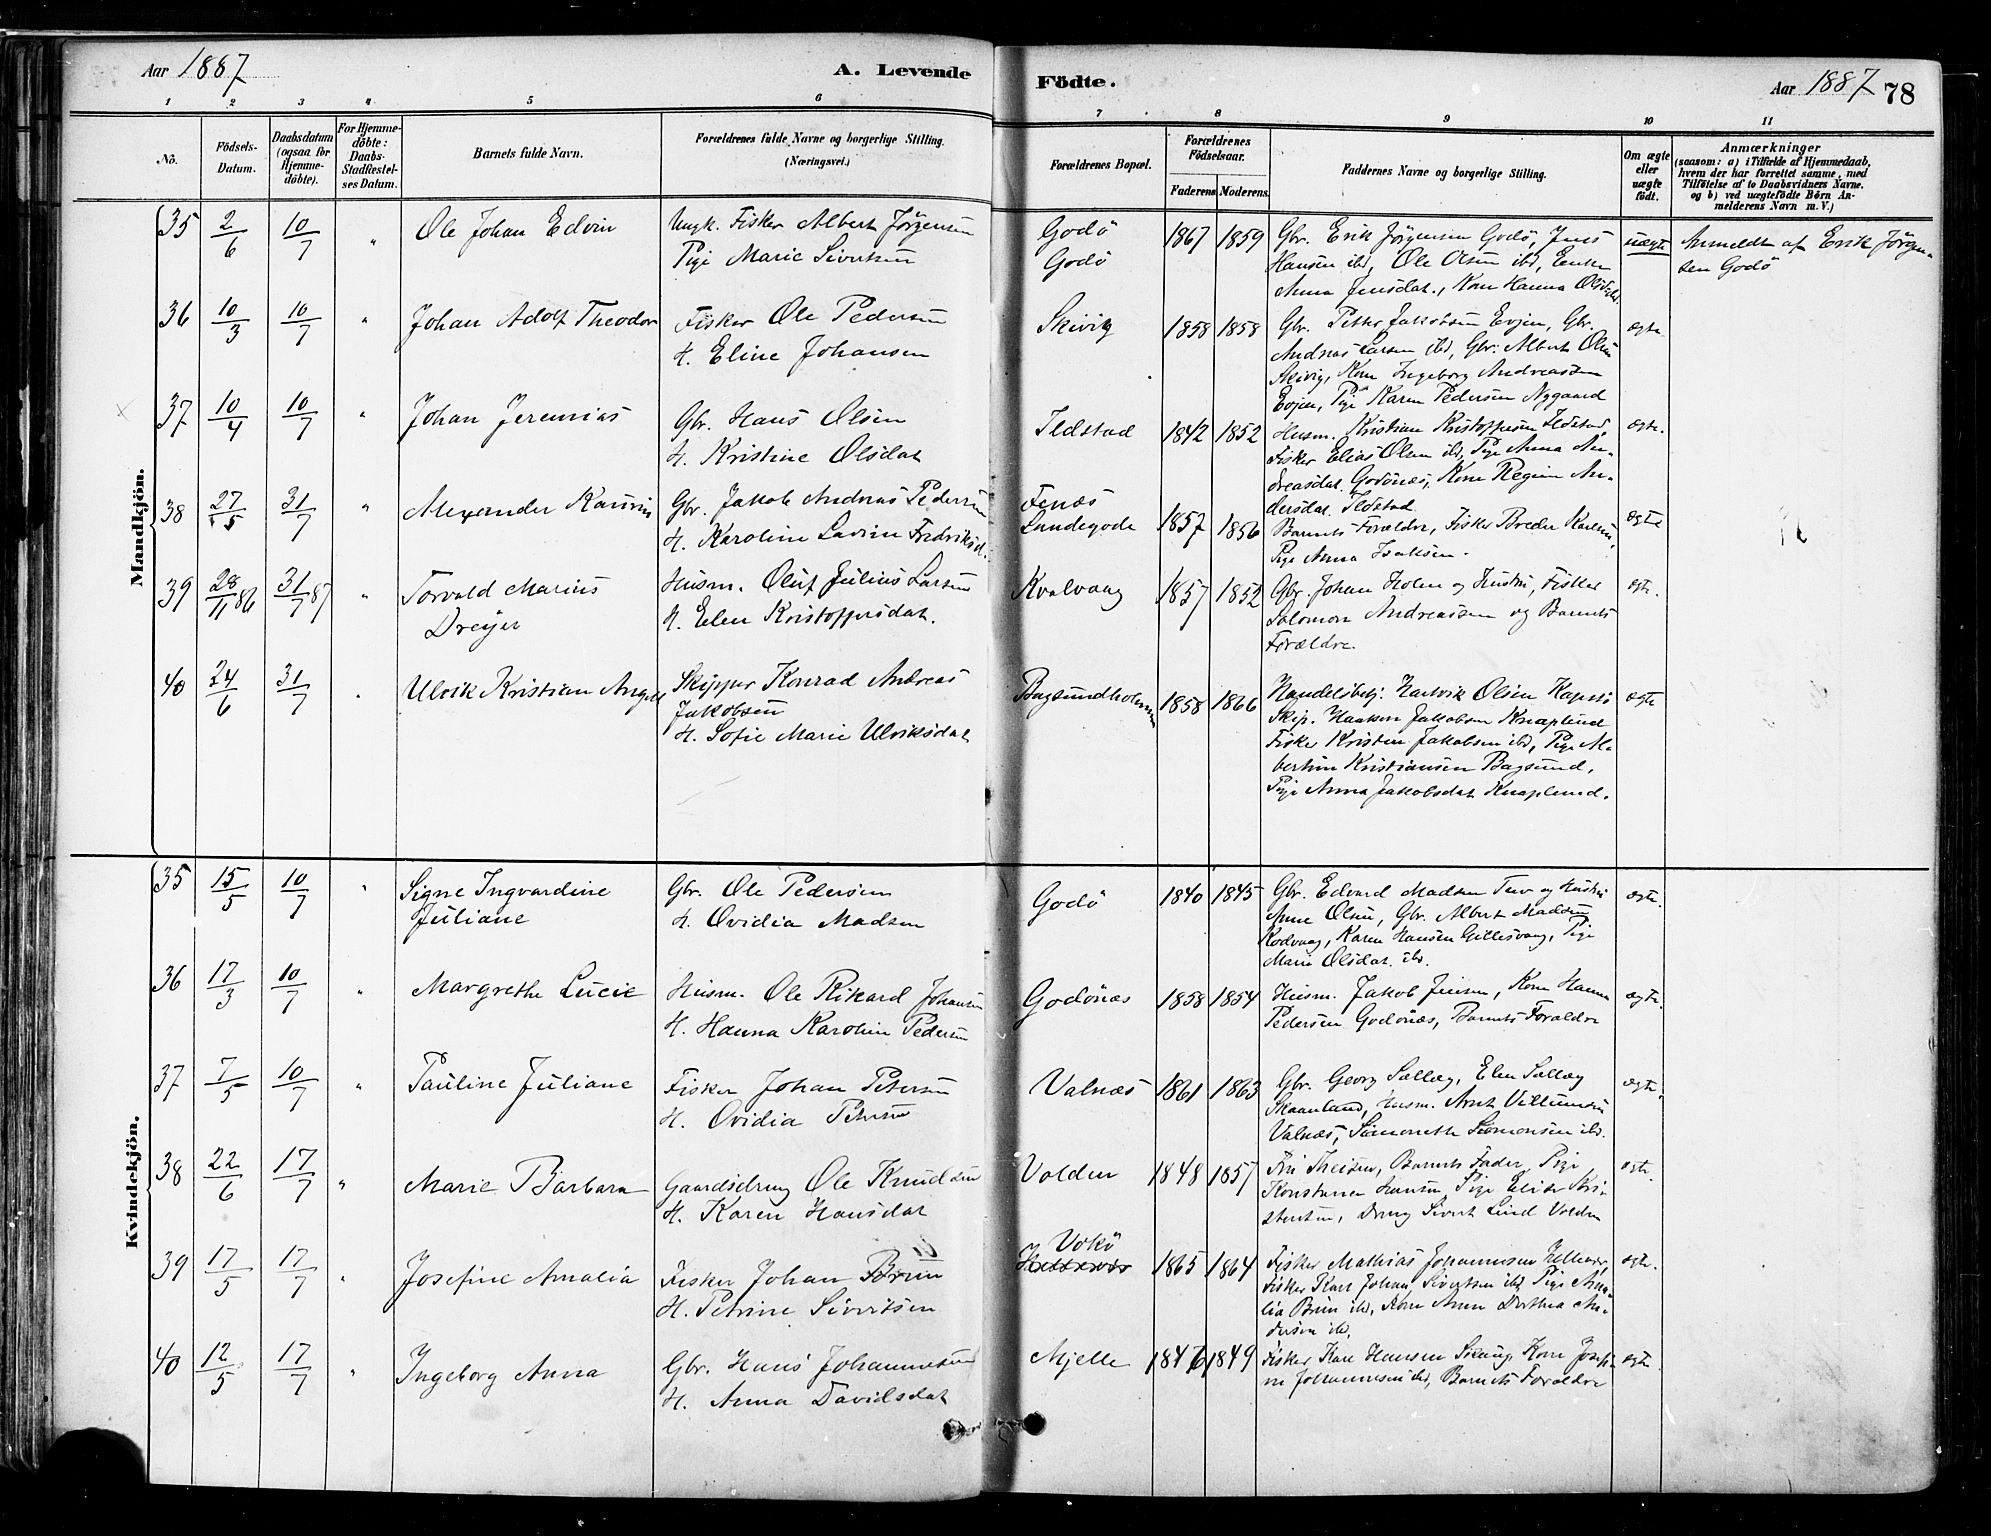 Aar 1887
A. Levende
Födte.
Aar 1887 78
1 2 3 4 5 6 7 8 9 10 11
No.
Födsels-
Datum.
Daabsdatum
(ogsaa for
Hjemme-
döbte).
For Hjemme-
döbte:
Daabs-
Stadfæstel-
ses Datum.
Barnets fulde Navn.
Forældrenes fulde Navne og borgerlige Stilling.
(Næringsvei.)
Forældrenes Bopæl.
Forældrenes
Födselsaar.
Faderens Moderens.
Faddernes Navne og borgerlige Stilling.
Om ægte
eller
uægte
födt.
Anmærkninger
(saasom: a) i Tilfælde af Hjemmedaab,
hvem der har forrettet samme, med
Tilföielse af to Daabsvidners Navne.
og b) ved uægtefödte Börn An-
melderens Navn m. V.)
Mandkjön.
35 2/6 10/7 " Ole Johan Edvin
Ungk. Fisker Albert Jørgensen
Pige Marie Sivertsen
Godö
Godö
1867 1859
Gbr. Erik Jørgensen Godö, Jens
Hansen ibd, Ole Olsen ibd, Enke
Anna Jensdat., Kone Hanna Olsdat
uægte
Anmeldt af Erik Jörgen-
sen Godö
36 10/3 10/7 " Johan Adolf Theodor
Fisker Ole Pedersen
H. Eline Johansen
Skivig
1858 1858
Gbr. Petter Jakobsen Evjen, Gbr.
Andreas Larsen ibd, Gbr. Albert Olsen
Skivig, Kone Ingeborg Andreassen
Evjen, Pige Karen Pedersen Nygaard
ægte
37 10/4 10/7 " Johan Jeremias
Gbr. Hans Olsen
H. Kristine Olsdat
Ildstad
1842 1852
Husm. Kristian Kristoffersen Ildstad,
Fisker Elias Olsen ibd, Pige Anna An-
dreasdat. Godönæs, Kone Regine An-
dersdat. Ildstad
ægte.
38 27/5 31/7 " Alexander
Gbr. Jakob Andreas Pedersen
H. Karoline Lavine Fredriksd.
Fenæs
Landegode
1857 1856
Barnets Forældre, Fisker Breder Karlsen,
Pige Anna Isaksen.
ægte
39 28/11 86 31/7 87 " Torvald Marius
Dreyer
Husm. Oluf Julius Larsen
H. Elen Kristoffersdat.
Kvalvaag
1857 1852
Gbr. Johan Holen og Hustru, Fisker
Salomon Andreassen og Barnets
Forældre.
ægte.
40 24/6 31/7 " Ulrik Kristian Angell
Skipper Konrad Andreas
Jakobsen
H. Sofie Marie Ulriksdat
Bagsundholmen
1858 1866
Handelsbetj. Hartvik Olsen
Skip. Haakon Jakobsen Knaplund
Fisker Kristen Jakobsen ibd, Pige Al-
bertine Kristiansen Bagsund,
Pige Anna Jakobsdat Knaplund.
ægte
Kvindekjön.
35 15/5 10/7 " Signe Ingvardine
Juliane
Gbr. Ole Pedersen
H. Ovidia Madsen
Godö
1840 1845
Gbr. Edvard Madsen Tuv og Hustru
Anne Olsen, Gbr. Albert Madsen
Kodvaag, Karen Hansen Gillesvaag, Pige
Marie Olsdat. ibd.
ægte.
36 17/3 10/7 " Margrethe Lucie
Husm. Ole Rikard Johansen
H. Hanna Karoline Pedersen
Godönæs
1858 1854
Husm. Jakob Jensen, Kone Hanna
Pedersen Godönæs, Barnets Forældre
ægte.
37 7/5 10/7 " Pauline Juliane
Fisker Johan Petersen
H. Ovidia Petersen
Valnæs
1861 1863
Gbr. Georg Sellæg, Elen Sellæg
Skaanland, Husm. Arnt Villumsen
Valnæs, Simonette Simonsen ibd.
ægte.
38 22/6 17/7 " Marie Barbara
Gaardsdreng Ole Knudsen
H. Karen Hansdat
Volden
1848 1857
Theisen, Barnets Fader, Pige
Konstance Hansen, Pige Elise Kri-
stensen, Dreng Sivert Lind Volden
ægte.
39 17/5 17/7 " Josefine Amalia
Fisker Johan Brun
H. Petrine Sivertsen
Vokö
1865 1864
Fisker Mathias Johannesen
Fisker Karl Johan Sivertsen ibd, Pige Ama-
lia Brun ibd, Kone Anne Dorthea An-
dersen ibd.
ægte.
40 12/5 17/7 " Ingeborg Anna
Gbr. Hans Johannesen
H. Anna Davidsdat
Mjelle
1846 1849
Fisker Karl Hansen Kone Josefi-
ne Johannesen ibd, Barnets Forældre
ægte.